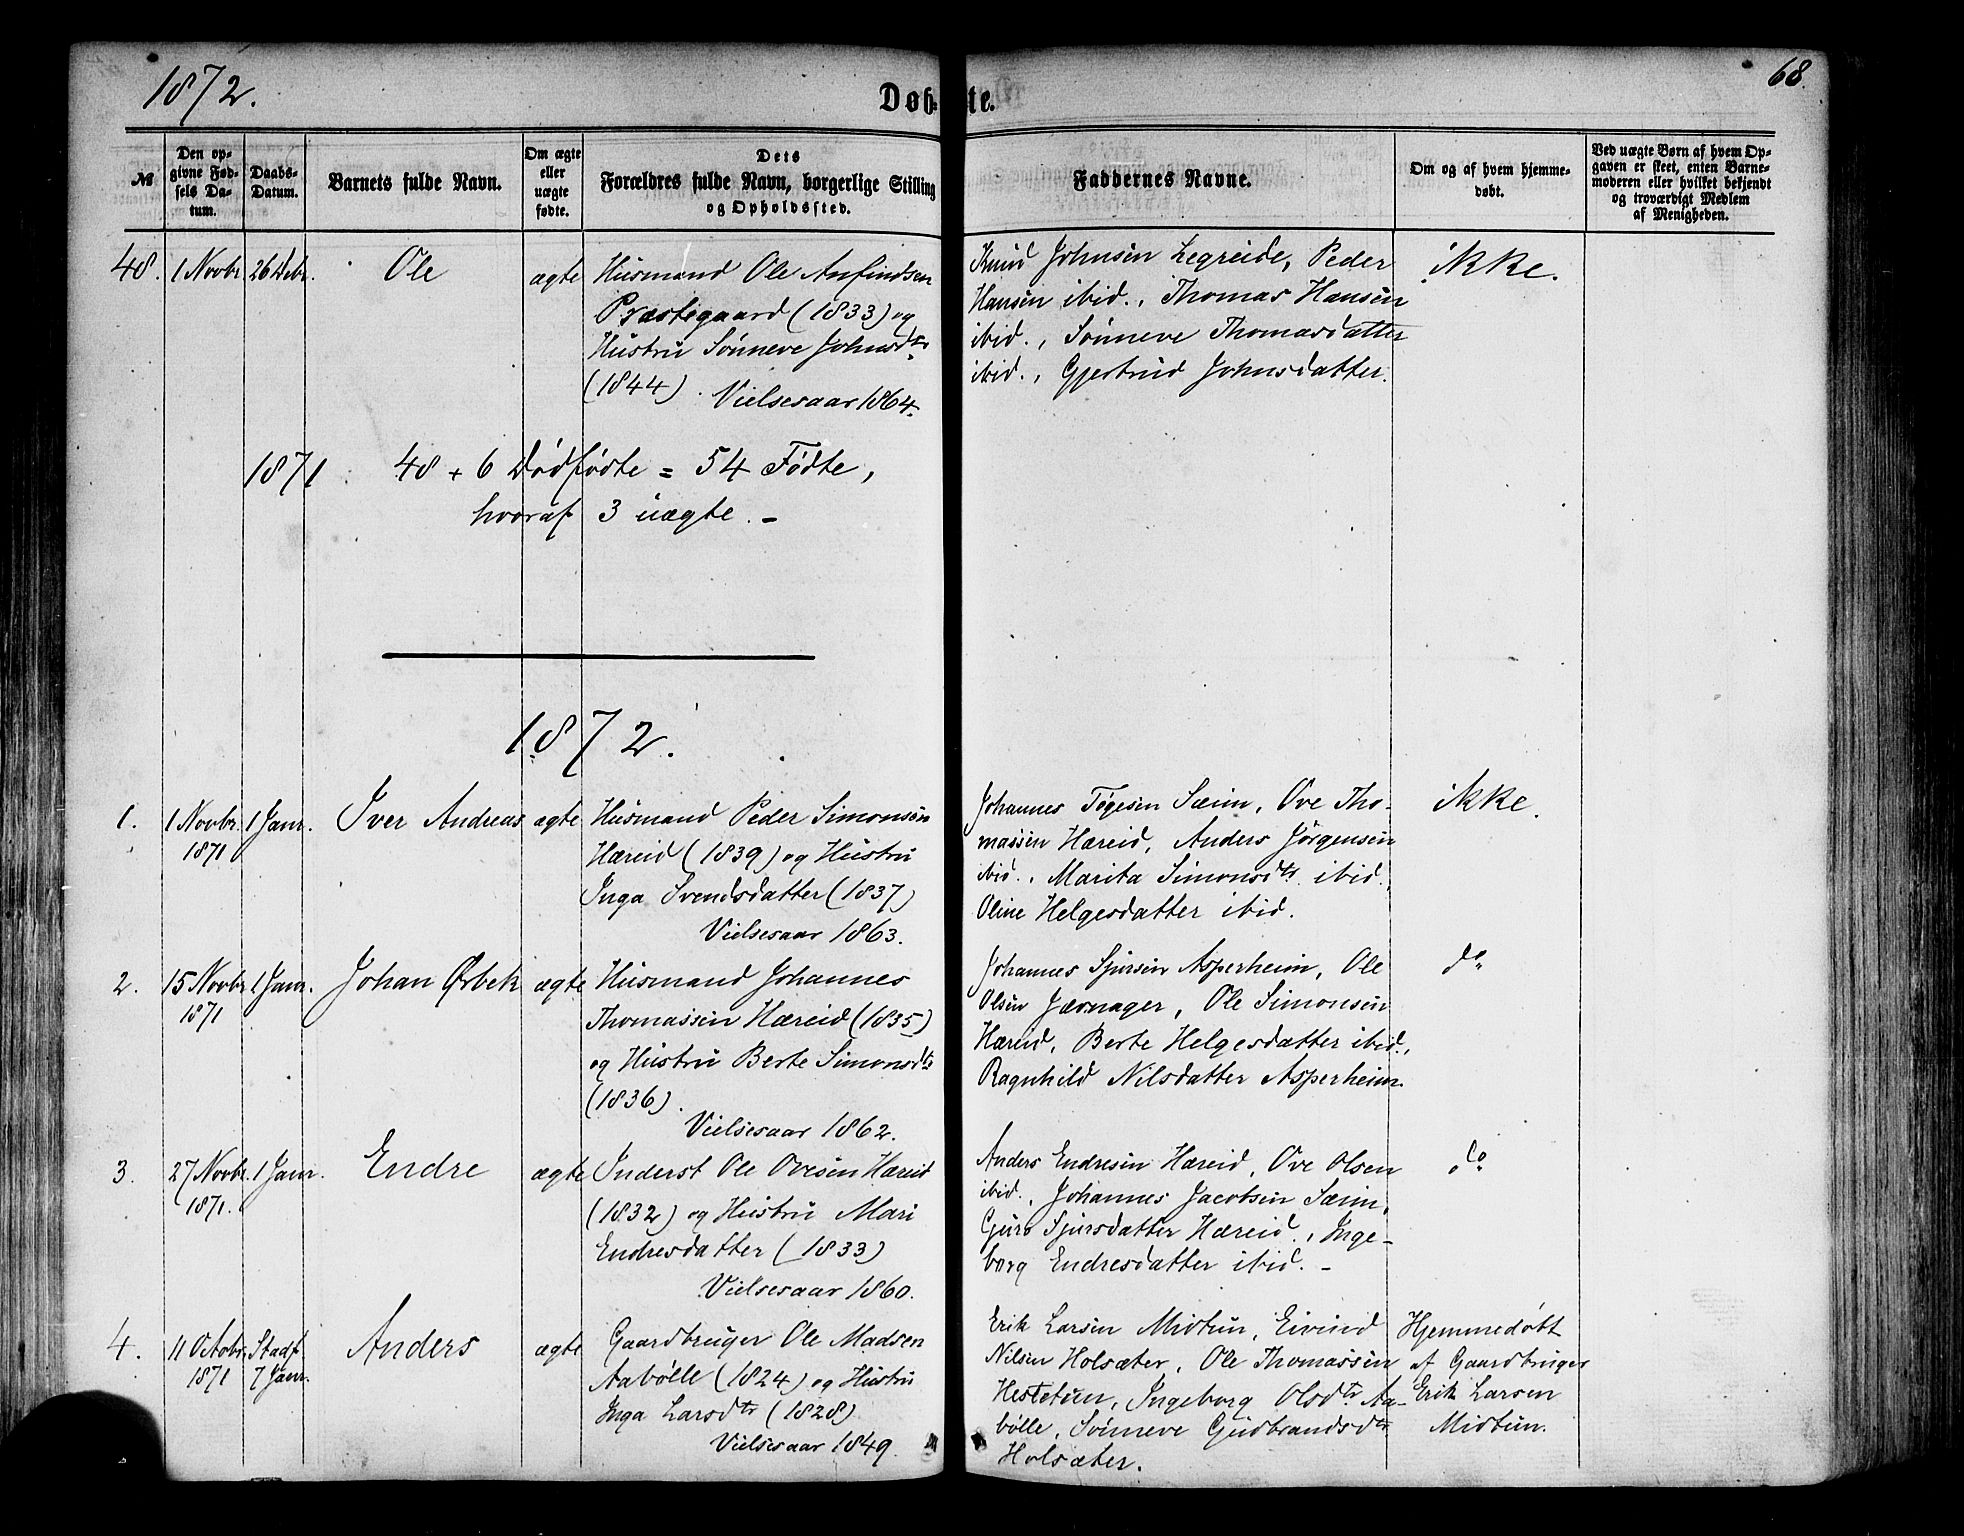 1872.
Døbte.
68.
№
Den opgivne Fødsels Datum.
Daabs-Datum.
Barnets fulde Navn.
Om ægte eller uægte fødte.
Dets Forældres fulde Navn, borgerlige Stilling og Opholdssted.
Faddernes Navne.
Om og af hvem hjemmedøbt.
Ved uægte Børn af hvem Opgaven er skeet, enten Barnemoderen eller hvilket bekjendt og troværdigt Medlem af Menigheden.
48. 1 Novbr. 26 Debr. Ole ægte
Husmand Ole Anfindsen
Præstegaard (1833) og
Hustru Sønneve Johnsdtr
(1844). Vielsesaar 1864.
Knud Johnsen Legreide, Peder
Hansen ibid., Thomas Hansen
ibid., Sønneve Thomasdatter
ibid., Gjertrud Johnsdatter.
ikke.
1871 48 + 6 Dødfødte = 54 Fødte,
hvoraf 3 uægte. -
1872.
1. 1 Novbr. 1 Janr. Iver Andreas ægte
1871
Husmand Peder Simonsen
Hæreid (1839) og Hustru
Inga Svendsdatter (1837)
Vielsesaar 1863.
Johannes Tøgesen Sæim, Ove Tho-
massen Hæreid, Anders Jörgensen
ibid., Marita Simonsdtr ibid.,
Oline Helgesdatter ibid.
ikke.
2. 15 Novbr. 1 Janr. Johan Ørbek ægte
1871
Husmand Johannes
Thomassen Hæreid (1835)
og Hustru Berte Simonsdtr
(1836).
Vielsesaar 1862.
Johannes Sjursen Asperheim, Ole
Olsen Jærnager, Ole Simonsen
Hæreid, Berte Helgesdatter ibid.,
Ragnhild Nilsdatter Asperheim.
do
3. 27 Novbr. 1 Janr. Endre ægte
1871.
Inderst Ole Ovesen Hæreid
(1832) og Hustru Mari
Endresdatter (1833)
Vielsesaar 1860.
Anders Endresen Hæreid, Ove Olsen
ibid., Johannes Jacobsen Sæim,
Guro Sjursdatter Hæreid., Inge-
borg Endresdatter ibid. -
do
4. 11 Octobr. Stadf. Anders ægte
1871 7 Janr.
Gaardbruger Ole Madsen
Aabølle (1824) og Hustru
Inga Larsdtr (1828)
Vielsesaar 1849.
Erik Larsen Midtun, Eivind
Nilsen Holsæter, Ole Thomassen
Hestetun, Ingeborg Olsdtr Aa-
bølle, Sønneve Gudbrandsdtr
Holsæter.
Hjemmedøbt
af Gaardbruger
Erik Larsen
Midtun.